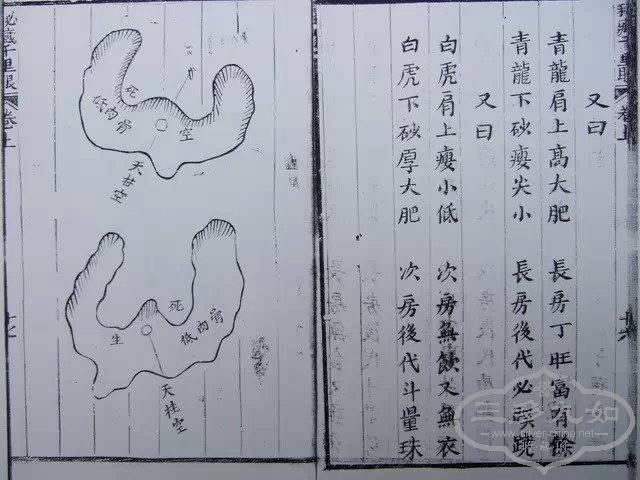 秘藏千里眼 卷上
又曰
青龍肩上高大肥 長房丁旺富有餘
青龍下砂瘦尖小 長房後代必
又曰
白虎肩上瘦小低 次房無飲又無衣
白虎下砂厚大肥 次房後代斗量珠
秘藏千里眼 卷上
死
低肉骨
空
天柱空
死
生
低肉骨
天柱空